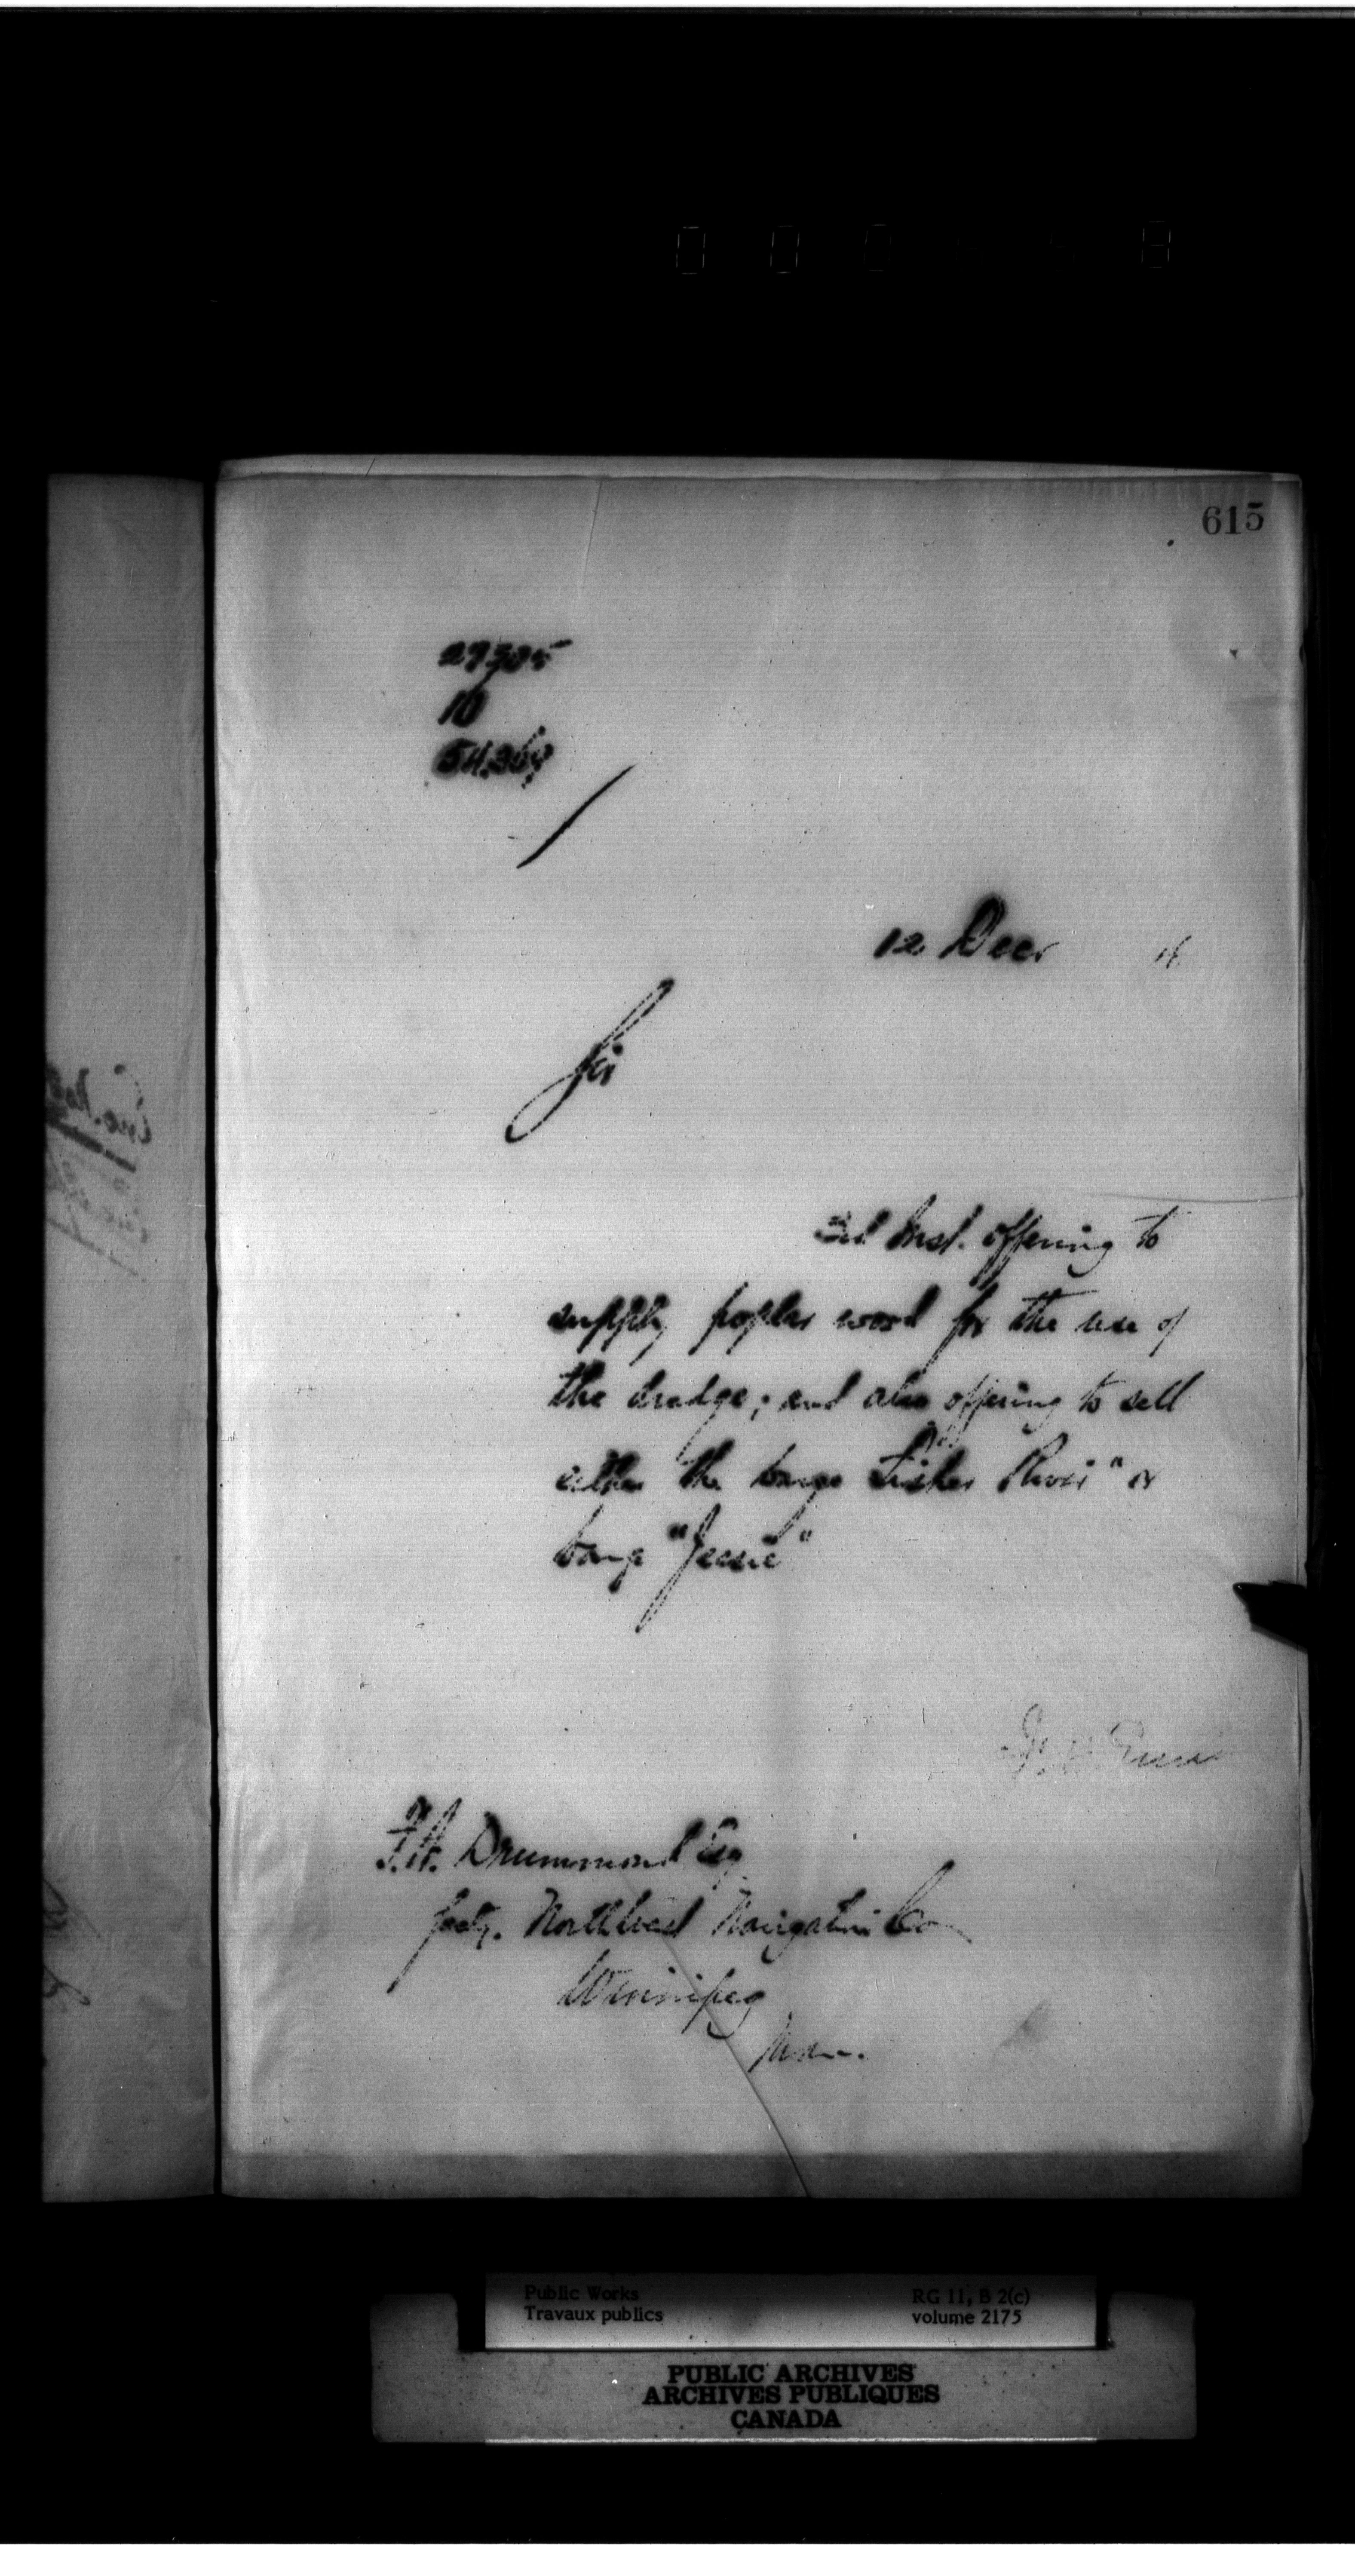 615
27305
10
54,364
12 Decr
Sir
3rd Inst. offering to
supply poplar wood for the use of
the dredge; and also offering to sell
either the barge "Fisher River" or
barge "Jessie"
F.H. Drummond Esq
Secty. Northwest Navigation Co
Winnipeg
Man.
Public Works
Travaux publics
RG 11, B 2(c)
volume 2175
PUBLIC ARCHIVES
ARCHIVES PUBLIQUES
CANADA